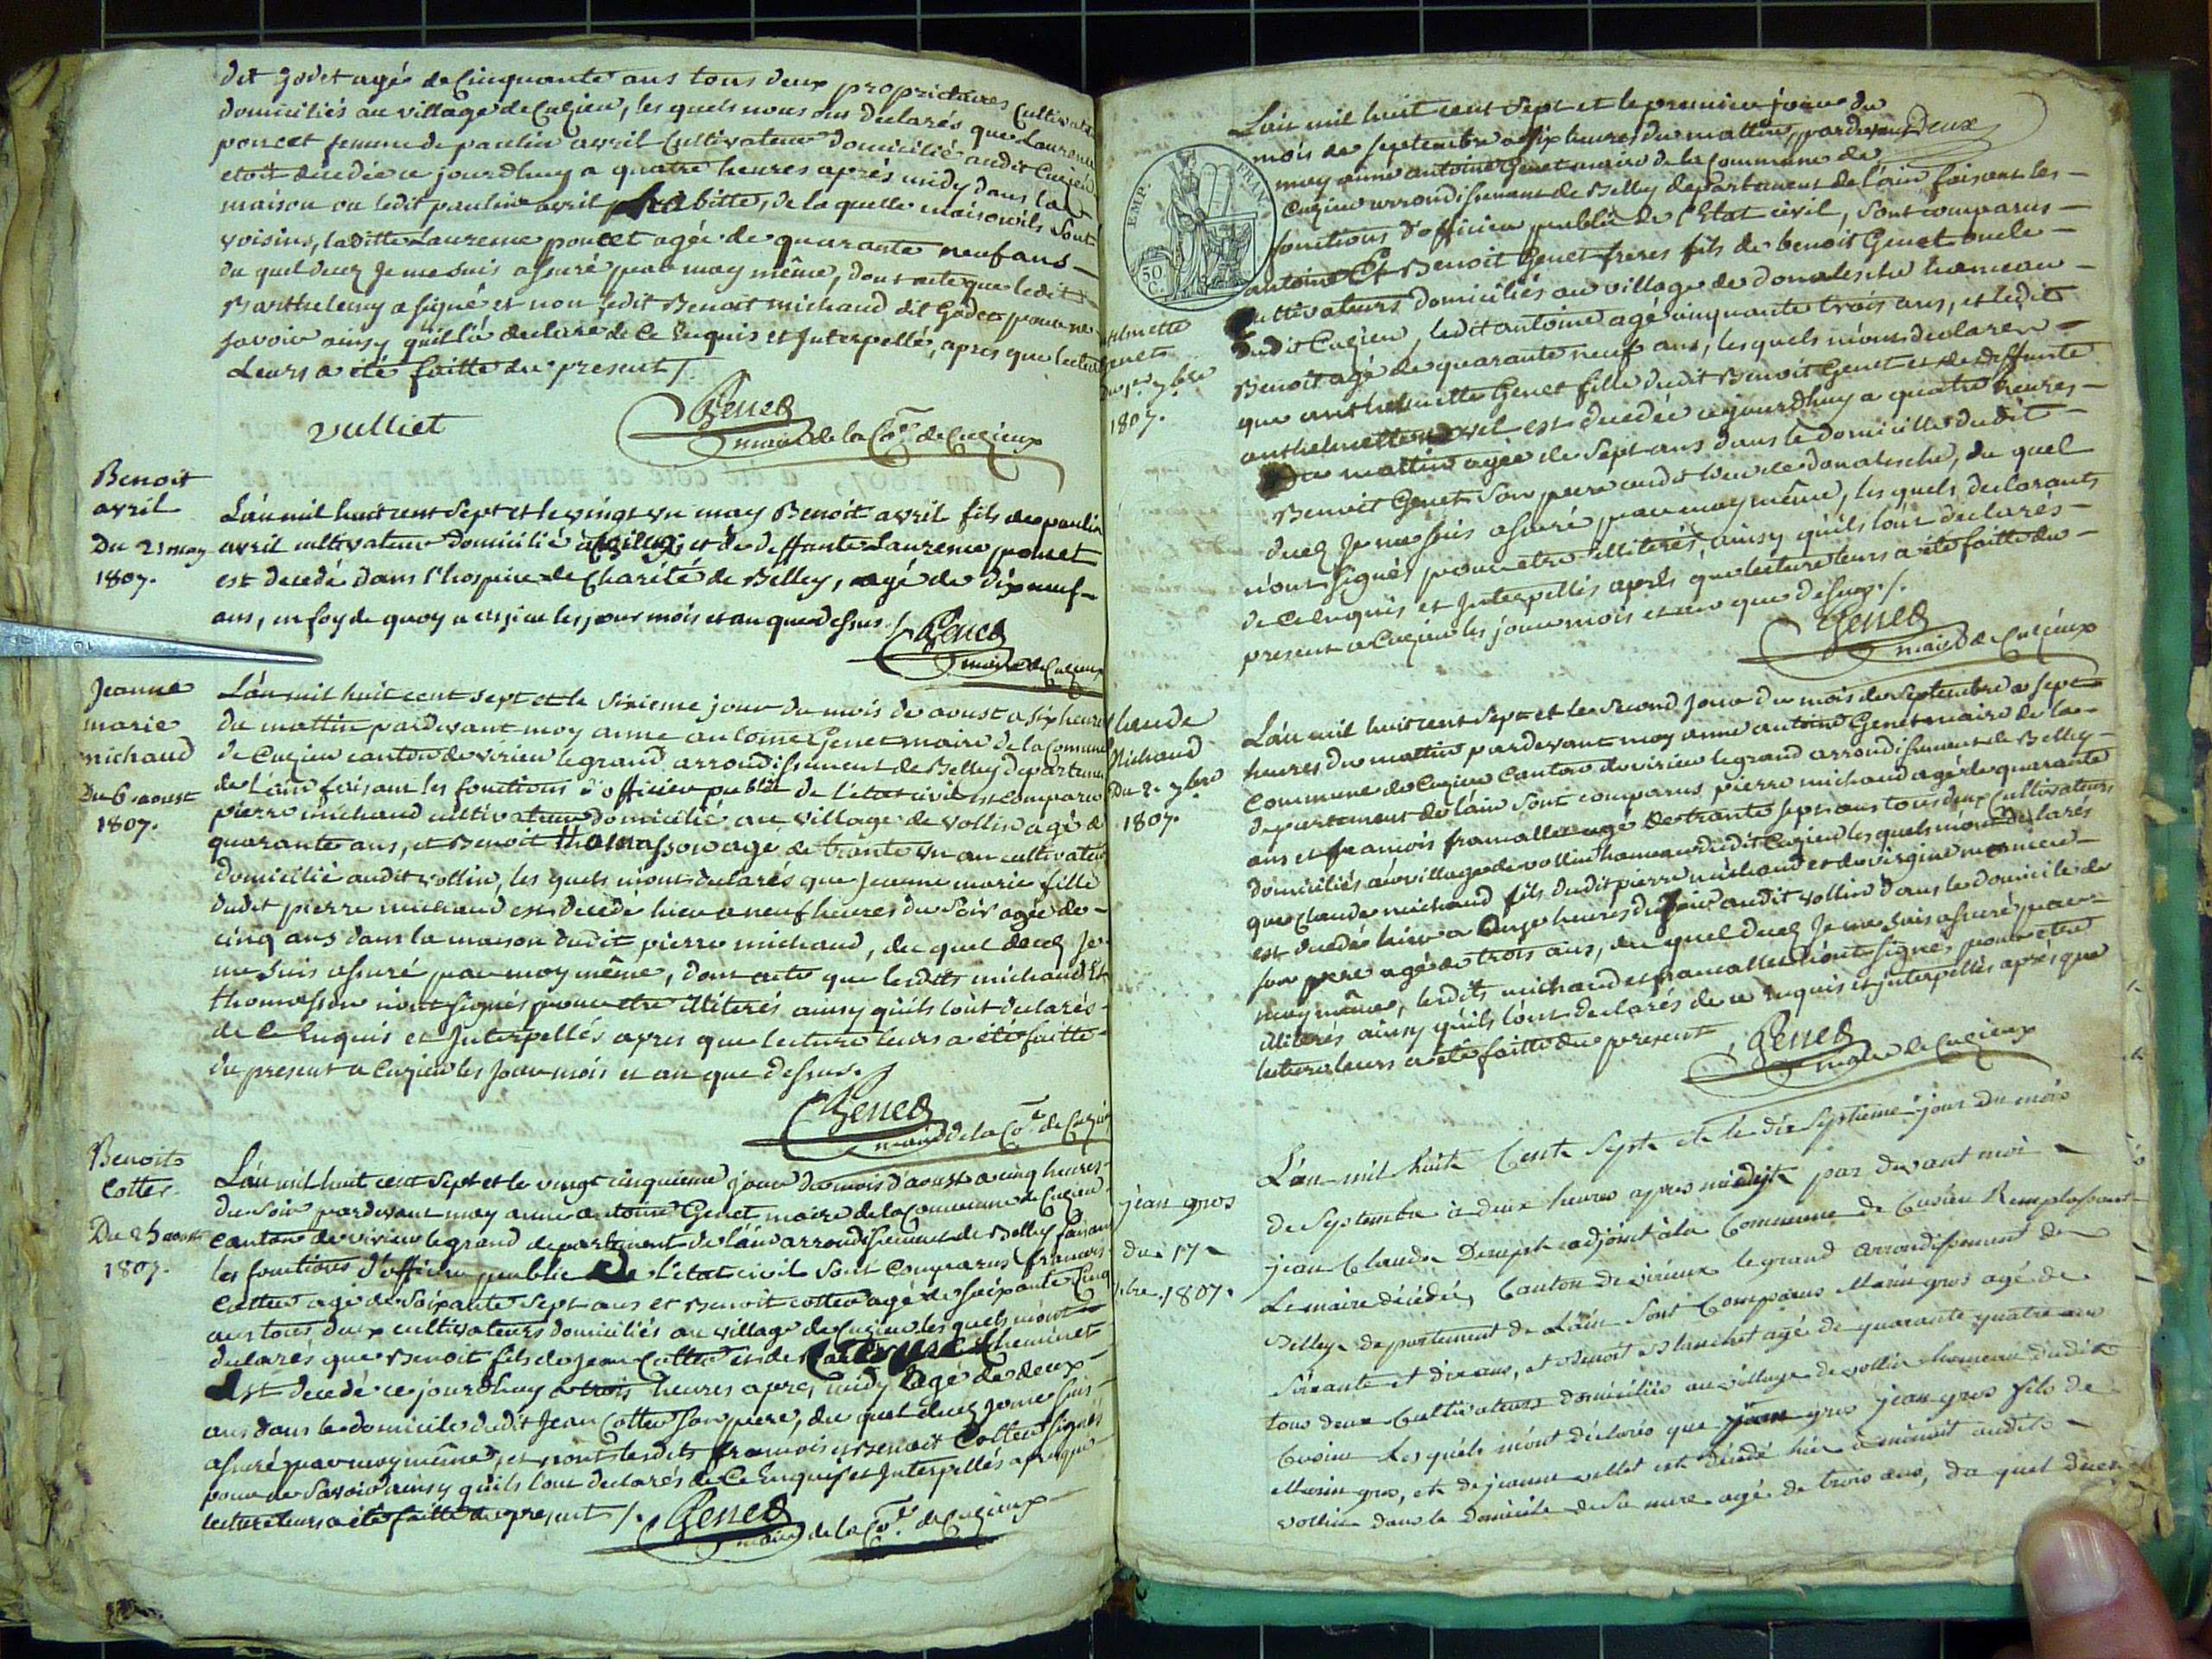 dit godet agé de Cinquante ans tous deux proprietaires Cultivat
domiciliés au village de Cuzieu, les quels nous ont declarés que Laurence
poncet femme de paulin avril Cultivateur domicilié audit Cuzieu
etoit decedée ce jourdhuy a quatre heures aprés midy dans la
maison ou ledit paulin avril habitte, de la quelle maison ils sont
voisins, laditte Laurence poncet agée de quarante neuf ans
du quel decez je me suis assuré par moy même, dont acte que ledit
Barthelemy a signé et non ledit Benoit michaud dit Godet pour ne
savoir ainsy quil la declaré de ce Enquis et Interpellé, apres que lecture
Leurs a été faitte du present /.
vulliet
Genet
maire de la Co.ne de Cuzieux
Benoit
avril
Du 21 may
1807.
L'an mil huit cent sept et le vingt un may Benoit avril fils de paulin
avril cultivateur domicilié a et de deffunte Laurence poncet
est decedé dans l'hospice de Charité de Belley, agé de dix neuf
ans, en foy de quoy a cuzieu les jour mois et an que dessus /.
Genet
maire de Cuzieux
Jeanne
marie
michaud
Du 6 aoust
1807.
L'an mil huit cent sept et le sixieme jour du mois de aoust a six heures
du mattin pardevant moy anne antoine Genet maire de la Commune
de Cuzieu canton de virieu le grand arrondissement de Belley departement
de l'ain faisant les fonctions d'officier public de l'etat civil est comparu
pierre michaud cultivateur domicilié au village de vollin agé de
quarante ans, et Benoit thomasson agé de trante un an cultivateur
domicilié audit vollin, les quels m'ont declarés que jeanne marie fille
dudit pierre michaud est decedé hier a neuf heures du soir agée de
cinq ans dans la maison dudit pierre michaud, du quel decez Je
me suis assuré par moy même, dont acte que lesdits michaud Et
thomasson n'ont signés pour etre illiterés ainsy qu'ils l'ont declarés
de ce Enquis et Interpellés apres que lecture leurs a été faitte
du present a Cuzieu les Jour mois et an que dessus. /
Genet
maire de la Co.ne de Cuzieu
Benoit
Cottet
Du 25 aoust
1807.
L'an mil huit cent sept et le vingt cinquieme jour du mois d'aoust a cinq heures
du soir pardevant moy anne antoine Genet maire de la Commune de Cuzieu
Canton de virieu le grand departement de l'ain arrondissement de Belley faisant
les fonctions d'officier public De l'état civil sont comparus francois
Cottet agé de soixante sept ans et Benoit cottet agé de soixante Cinq
ans tous deux cultivateurs domiciliés au village de Cuzieu les quels m'ont
declarés que Benoit fils de Jean Cottet et de cheminet
Est decedé ce jourdhuy a trois heures apres midy agé de deux
ans dans le domicile dudit Jean Cottet son pere, du quel decez je me suis
assuré par moy même, et n'ont lesdits francois et Benoit Cottet signés
pour ne savoir ainsy qu'ils l'ont declarés de Ce Enquis et Interpellés apres que
lecture leurs a été faitte du present /.
Genet
maire de la Co.ne de Cuzieux
EMP.
FRAN.
50
C.
deux
L'an mil huit cent sept et le premier jour du
mois de septembre a six heures du mattin, pardevant
moy anne antoine Genet maire de la Commune de
Cuzieu arrondissement de Belley departement de l'ain faisant les
fonctions d'officier public de l'Etat civil, sont comparus
antoine Et Benoit Genet freres fils de benoit Genet oncle
Cultivateurs domiciliés au village de donalesche hameau
dudit Cuzieu, ledit antoine agé cinquante trois ans, et ledit
Benoit agé de quarante neuf ans, les quels m'ont declarés
que anthelmette Genet fille dudit Benoit Genet et de deffunte
anthelmette avril est decedée cejourdhuy a quatre heures
du mattin agée de sept ans dans le domicille dudit
Benoit Genet son pere audit lieu de donalesche, du quel
decez Je me suis assuré par moy même, les quels declarants
n'ont signés pour etre illiterés, ainsy qu'ils l'ont declarés
de Ce Enquis et Interpellés aprés que lecture leurs a été faitte du
present a Cuzieu les jour mois et an que dessus. /.
Genet
maire de Cuzieux
elmette
genet
Du 1er 7bre
1807.
laude
Michaud
Du 2. 7bre
1807.
L'an mil huit cent sept et le second Jour du mois de septembre a sept
heures du mattin pardevant moy anne antoine Genet maire de la
Commune de Cuzieu Canton de virieu le grand arrondissement de Belley
departement de l'ain sont comparus pierre michaud agé de quarante
ans et francois francallet agé de trante sept ans tous deux Cultivateurs
domiciliés au village de vollin hameau dudit Cuzieu les quels m'ont declarés
que Claude michaud fils dudit pierre michaud et de virgine
est decedé hier a onze heures du soir audit vollin dans le domicile de
son pere agé de trois ans, du quel decez Je me suis assuré par
moy même, lesdits michaud et francallet n'ont signés pour etre
illiterés ainsy qu'ils l'ont declarés de ce Enquis et Interpellés aprés que
lecture leurs a été faitte du present /.
Genet
maire de Cuzieux
jean gros
du 17
7bre. 1807.
L'an mil huit Cent Sept et le dix septieme jour du mois
de Septembre à deux heures apres midy par devant moi
jean Claude adjoint à la Commune de Cusieu Remplassant
Le maire décédé, Canton de virieux le grand arrondissement de
Belley departement de L'ain Sont Comparus Marin gros agé de
Soixante et dix ans, et Benoit Blanchet agé de quarante quatre ans
tous deux Cultivateurs domiciliés au village de vollin hameau dudit
Cusieu Lesquels m'ont déclarés que jean gros jean gros fils de
Marin gros, et de jeanne vellet est Décédé hier à minuit audit
vollin dans le domicile de sa mere agé de trois ans, du quel Deces